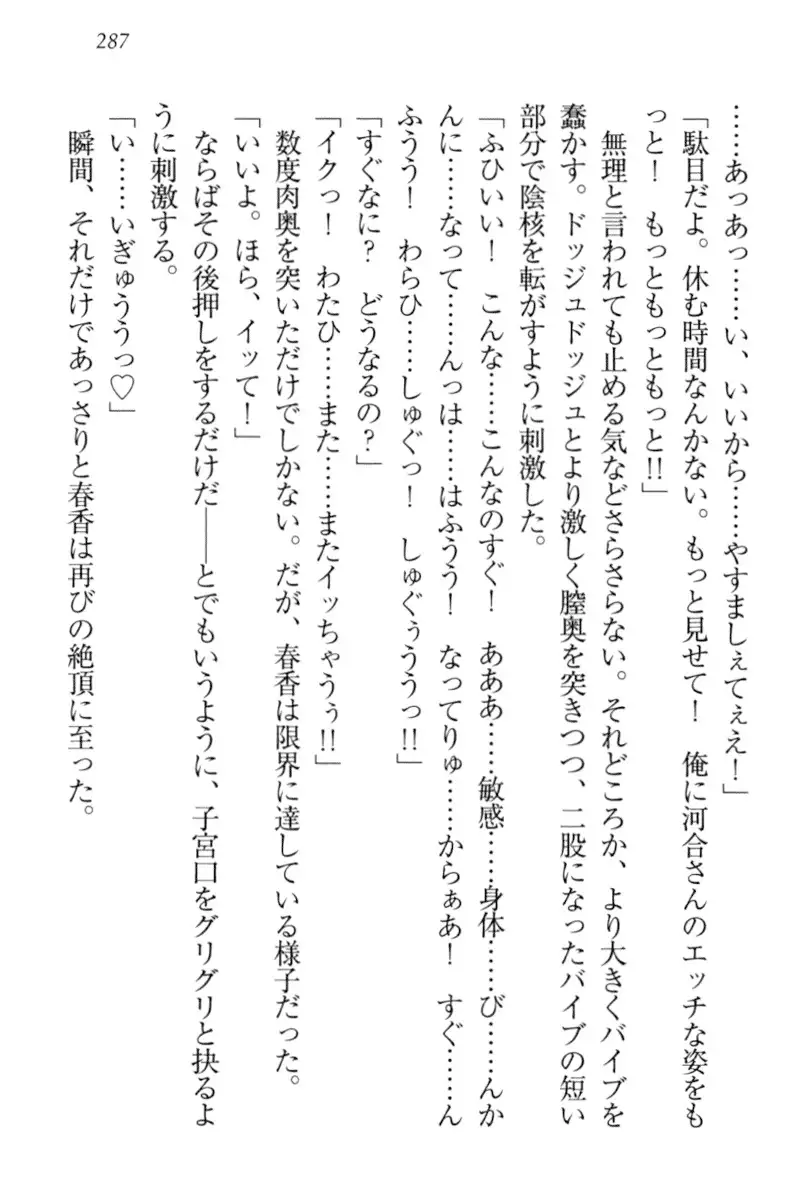 287
……あっあっ……い、いいから……やすましぇてぇえ！」
「駄目だよ。休む時間なんかない。もっと見せて！　俺に河合さんのエッチな姿をも
っと！　もっともっともっと!!」
　無理と言われても止める気などさらさらない。それどころか、より大きくバイブを
蠢かす。ドッジュドッジュとより激しく膣奥を突きつつ、二股になったバイブの短い
部分で陰核を転がすように刺激した。
「ふひいい！　こんな……こんなのすぐ！　あああ……敏感……身体……び……んか
んに……なって……んっは……はふうう！　なってりゅ……からぁあ！　すぐ……ん
ふうう！　わらひ……しゅぐっ！　しゅぐぅううっ!!」
「すぐなに？　どうなるの？」
「イクっ！　わたひ……また……またイッちゃうぅ!!」
　数度肉奥を突いただけでしかない。だが、春香は限界に達している様子だった。
「いいよ。ほら、イッて！」
　ならばその後押しをするだけだ――とでもいうように、子宮口をグリグリと抉るよ
うに刺激する。
「い……いぎゅううっ♡」
　瞬間、それだけであっさりと春香は再びの絶頂に至った。